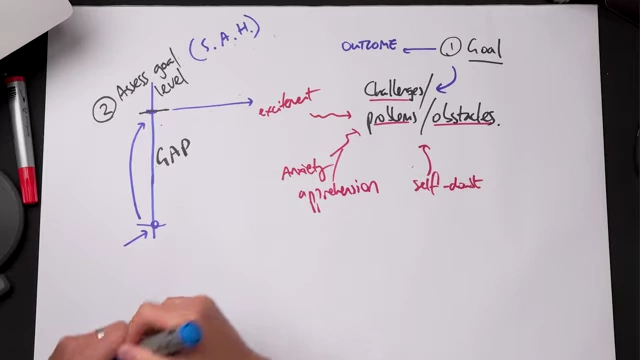 ② Assess goal level
(S.A.H.)
GAP
OUTCOME
① Goal
Challenges/
problems/obstacles.
excitement
Anxiety
apprehension
self-doubt